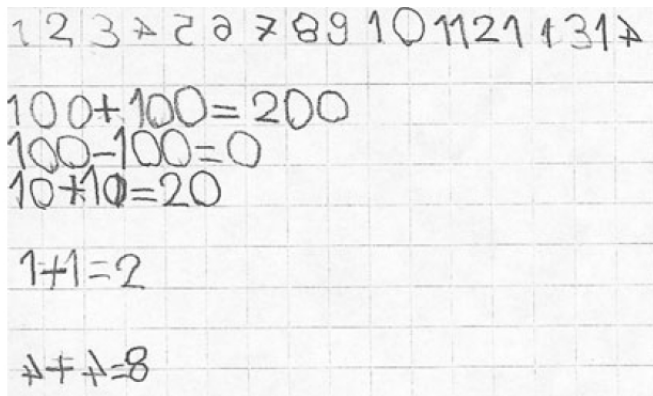 1 2 3 4 5 6 7 8 9 10 11 21 13 14
100+100=200
100-100=0
10+10=20
1+1=2
4+4=8